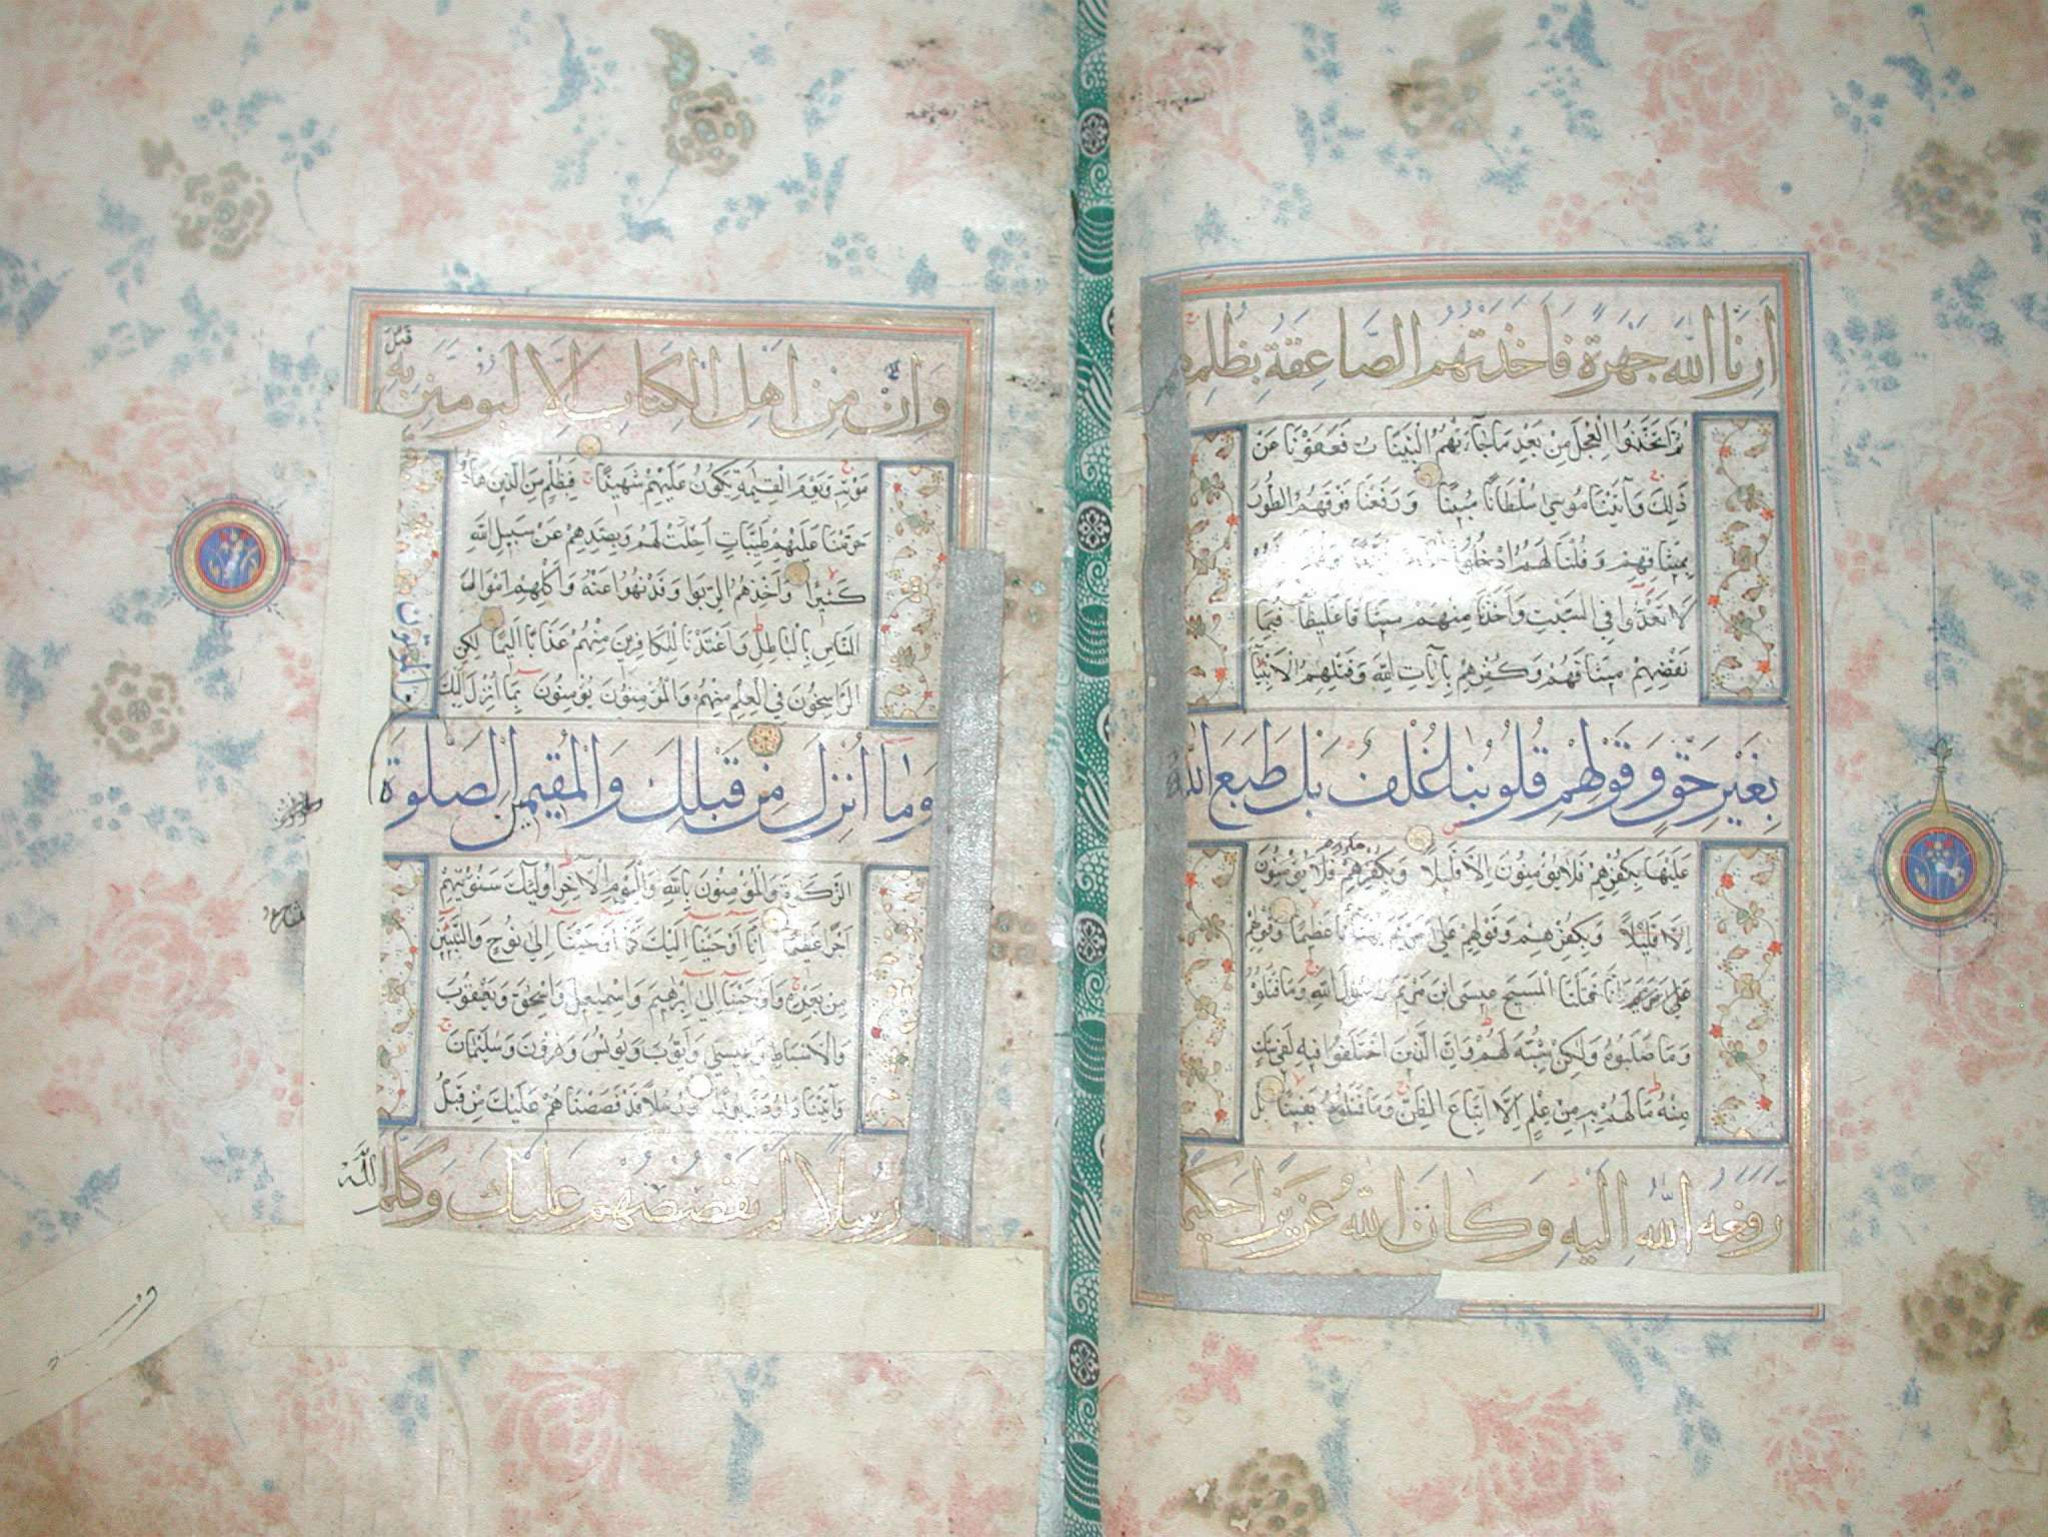 اَرِنَا اللّٰهَ جَهْرَةً فَاَخَذَتْهُمُ الصَّاعِقَةُ بِظُلْمِهِمْ
ثُمَّ اتَّخَذُوا الْعِجْلَ مِنْ بَعْدِ مَا جَآءَتْهُمُ الْبَيِّنَاتُ فَعَفَوْنَا عَنْ
ذٰلِكَ وَآتَيْنَا مُوسٰى سُلْطَانًا مُبِينًا وَرَفَعْنَا فَوْقَهُمُ الطُّورَ
بِمِيثَاقِهِمْ وَقُلْنَا لَهُمُ ادْخُلُوا
لَا تَعْدُوا فِي السَّبْتِ وَاَخَذْنَا مِنْهُمْ مِيثَاقًا غَلِيظًا فَبِمَا
نَقْضِهِمْ مِيثَاقَهُمْ وَكُفْرِهِمْ بِآيَاتِ اللّٰهِ وَقَتْلِهِمُ الْاَنْبِيَآءَ
بِغَيْرِ حَقٍّ وَقَوْلِهِمْ قُلُوبُنَا غُلْفٌ بَلْ طَبَعَ اللّٰهُ
عَلَيْهَا بِكُفْرِهِمْ فَلَا يُؤْمِنُونَ اِلَّا قَلِيلًا وَبِكُفْرِهِمْ فَلَا يُؤْمِنُونَ
اِلَّا قَلِيْلًا وَبِكُفْرِهِمْ وَقَوْلِهِمْ عَلٰى مَرْيَمَ بُهْتَانًا عَظِيمًا وَقَوْلِهِمْ
عَلٰى مَرْيَمَ اِنَّا قَتَلْنَا الْمَسِيحَ عِيسَى ابْنَ مَرْيَمَ رَسُولَ اللّٰهِ وَمَا قَتَلُوْ
وَمَا صَلَبُوهُ وَلٰكِنْ شُبِّهَ لَهُمْ وَاِنَّ الَّذِينَ اخْتَلَفُوا فِيهِ لَفِي شَكٍّ
مِنْهُ مَا لَهُمْ بِهِ مِنْ عِلْمٍ اِلَّا اتِّبَاعَ الظَّنِّ وَمَا قَتَلُوهُ يَقِينًا بَلْ
رَفَعَهُ اللّٰهُ اِلَيْهِ وَكَانَ اللّٰهُ عَزِيزًا حَكِيمًا
وَاِنْ مِنْ اَهْلِ الْكِتَابِ اِلَّا لَيُؤْمِنَنَّ بِهِ قَبْلَ
مَوْتِهِ وَيَوْمَ الْقِيٰمَةِ يَكُونُ عَلَيْهِمْ شَهِيدًا فَبِظُلْمٍ مِنَ الَّذِينَ هَادُ
حَرَّمْنَا عَلَيْهِمْ طَيِّبَاتٍ اُحِلَّتْ لَهُمْ وَبِصَدِّهِمْ عَنْ سَبِيلِ اللّٰهِ
كَثِيرًا وَاَخْذِهِمُ الرِّبٰوا وَقَدْ نُهُوا عَنْهُ وَاَكْلِهِمْ اَمْوَالَ
النَّاسِ بِالْبَاطِلِ وَاَعْتَدْنَا لِلْكَافِرِينَ مِنْهُمْ عَذَابًا اَلِيمًا لٰكِنِ
الرَّاسِخُونَ فِي الْعِلْمِ مِنْهُمْ وَالْمُؤْمِنُونَ يُؤْمِنُونَ بِمَا اُنْزِلَ اِلَيْكَ
وَمَا اُنْزِلَ مِنْ قَبْلِكَ وَالْمُقِيمِينَ الصَّلٰوةَ
وَالْمُؤْتُونَ
الزَّكٰوةَ وَالْمُؤْمِنُونَ بِاللّٰهِ وَالْيَوْمِ الْآخِرِ اُولٰٓئِكَ سَنُؤْتِيهِمْ
اَجْرًا عَظِيمًا اِنَّا اَوْحَيْنَا اِلَيْكَ كَمَا اَوْحَيْنَا اِلٰى نُوحٍ وَالنَّبِيِّينَ
مِنْ بَعْدِهِ وَاَوْحَيْنَا اِلٰى اِبْرٰهِيمَ وَاِسْمٰعِيلَ وَاِسْحٰقَ وَيَعْقُوبَ
وَالْاَسْبَاطِ وَعِيسٰى وَاَيُّوبَ وَيُونُسَ وَهٰرُونَ وَسُلَيْمَانَ
وَآتَيْنَا دَاوُدَ زَبُورًا وَرُسُلًا قَدْ قَصَصْنَاهُمْ عَلَيْكَ مِنْ قَبْلُ
وَرُسُلًا لَمْ نَقْصُصْهُمْ عَلَيْكَ وَكَلَّمَ اللّٰهُ